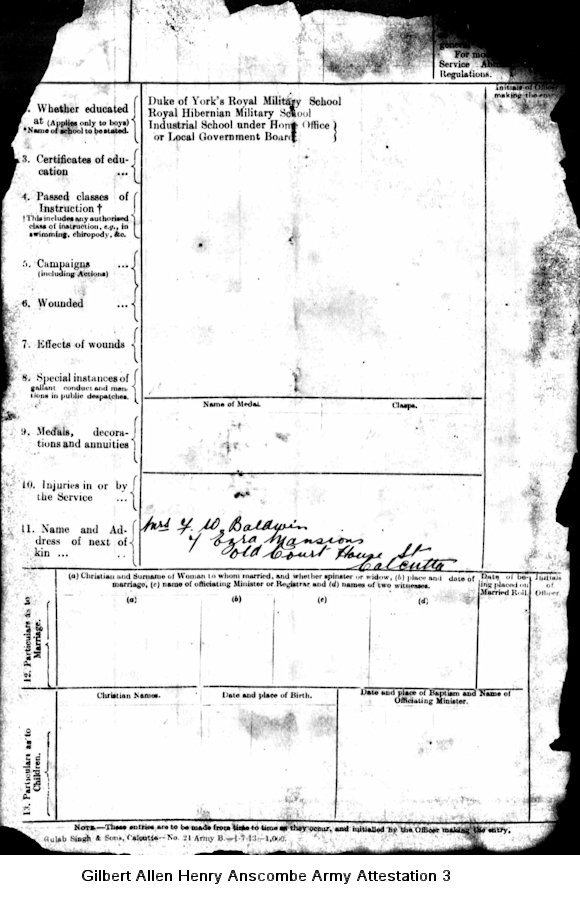 For mo
Service
Regulations.
Initials of Officer
making the entry
Whether educated
at (Applies only to boys)
*Name of school to be stated.
Duke of York's Royal Military School
Royal Hibernian Military School
Industrial School under Home Office
or Local Government Board
3. Certificates of edu-
cation ...
4. Passed classes of
Instruction †
†This includes any authorised
class of instruction, e.g., in
swimming, chiropody, &c.
5. Campaigns ...
(including Actions)
6. Wounded ...
7. Effects of wounds
8. Special instances of
gallant conduct and men-
tions in public despatches.
Name of Medal. Clasps.
9. Medals, decora-
tions and annuities
10. Injuries in or by
the Service ...
11. Name and Ad-
dress of next of
kin ... ..
Mrs Y. W. Baldwin
Ezra Mansions
Old Court House St
Calcutta
(a) Christian and Surname of Woman to whom married, and whether spinster or widow, (b) place and date of
marriage, (c) name of officiating Minister or Registrar and (d) names of two witnesses.
Date of be-
ing placed on
Married Roll.
Initials
of
Officer.
(a) (b) (c) (d)
12. Particulars as to
Marriage.
Christian Names. Date and place of Birth. Date and place of Baptism and Name of
Officiating Minister.
13. Particulars as to
Children.
NOTE.—These entries are to be made from time to time as they occur, and initialled by the Officer making the entry.
Gulab Singh & Sons, Calcutta—No. 21 Army B.—1-7-13—1,000.
Gilbert Allen Henry Anscombe Army Attestation 3